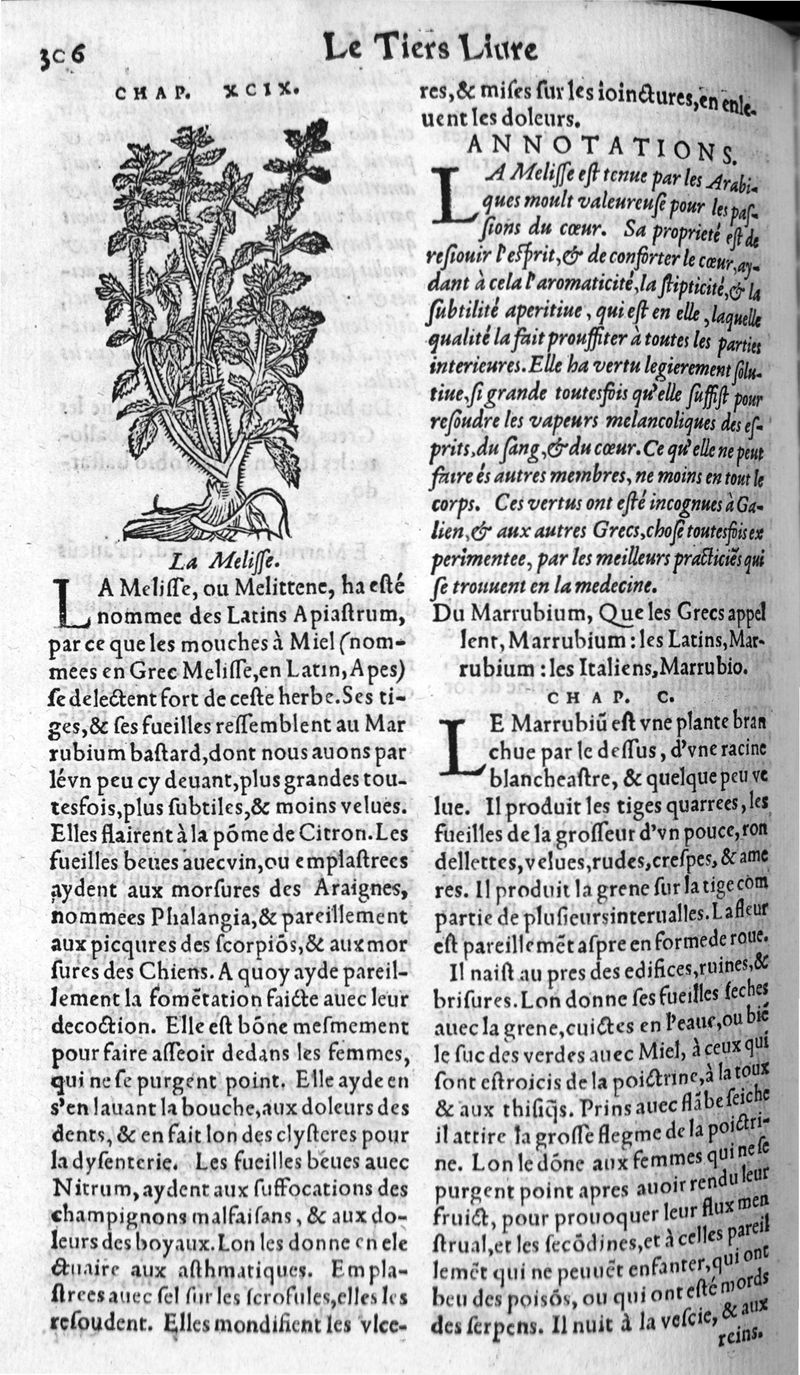 3c6
Le Tiers Liure
CHAP. XCIX.
La Melisse.
LA Melisse, ou Melittene, ha esté
nommee des Latins Apiastrum,
par ce que les mouches à Miel (nom-
mees en Grec Melisse, en Latin, Apes)
se delectent fort de ceste herbe. Ses ti-
ges, & ses fueilles ressemblent au Mar
rubium bastard, dont nous auons par
lévn peu cy deuant, plus grandes tou-
tesfois, plus subtiles, & moins velues.
Elles flairent à la pôme de Citron. Les
fueilles beues auec vin, ou emplastrees
aydent aux morsures des Araignes,
nommees Phalangia, & pareillement
aux picqures des scorpiõs, & aux mor
sures des Chiens. A quoy ayde pareil-
lement la fomẽtation faicte auec leur
decoction. Elle est bõne mesmement
pour faire asseoir dedans les femmes,
qui ne se purgent point. Elle ayde en
s'en lauant la bouche, aux doleurs des
dents, & en fait lon des clysteres pour
la dysenterie. Les fueilles beues auec
Nitrum, aydent aux suffocations des
champignons malfaisans, & aux do-
leurs des boyaux. Lon les donne en ele
ctuaire aux asthmatiques. Empla-
strees auec sel sur les scrofules, elles les
resoudent. Elles mondifient les vlce-
res, & mises sur les ioinctures, en enle-
uent les doleurs.
ANNOTATIONS.
LA Melisse est tenue par les Arabi-
ques moult valeureuse pour les pas-
sions du cœur. Sa proprieté est de
resiouir l'esprit, & de conforter le cœur, ay-
dant à cela l'aromaticité, la stipticité, & la
subtilité aperitiue, qui est en elle, laquelle
qualité la fait prouffiter à toutes les parties
interieures. Elle ha vertu legierement solu-
tiue, si grande toutesfois qu'elle suffist pour
resoudre les vapeurs melancoliques des es-
prits, du sang, & du cœur. Ce qu'elle ne peut
faire és autres membres, ne moins en tout le
corps. Ces vertus ont esté incognues à Ga-
lien, & aux autres Grecs, chose toutesfois ex
perimentee, par les meilleurs practiciẽs qui
se trouuent en la medecine.
Du Marrubium, Que les Grecs appel
lent, Marrubium : les Latins, Mar-
rubium : les Italiens, Marrubio.
CHAP. C.
LE Marrubiũ est vne plante bran
chue par le dessus, d'vne racine
blancheastre, & quelque peu ve
lue. Il produit les tiges quarrees, les
fueilles de la grosseur d'vn pouce, ron
dellettes, velues, rudes, crespes, & ame
res. Il produit la grene sur la tige com
partie de plusieurs interualles. La fleur
est pareillemẽt aspre en forme de roue.
Il naist au pres des edifices, ruines, &
brisures. Lon donne ses fueilles seches
auec la grene, cuictes en l'eaue, ou biẽ
le suc des verdes auec Miel, à ceux qui
sont estroicis de la poictrine, à la toux
& aux thisiq̃s. Prins auec flãbe seiche
il attire la grosse flegme de la poictri-
ne. Lon le dõne aux femmes qui ne se
purgent point apres auoir rendu leur
fruict, pour prouoquer leur flux men
strual, et les secõdines, et à celles pareil
lemẽt qui ne peuuẽt enfanter, qui ont
beu des poisõs, ou qui ont esté mords
des serpens. Il nuit à la vescie, & aux
reins.